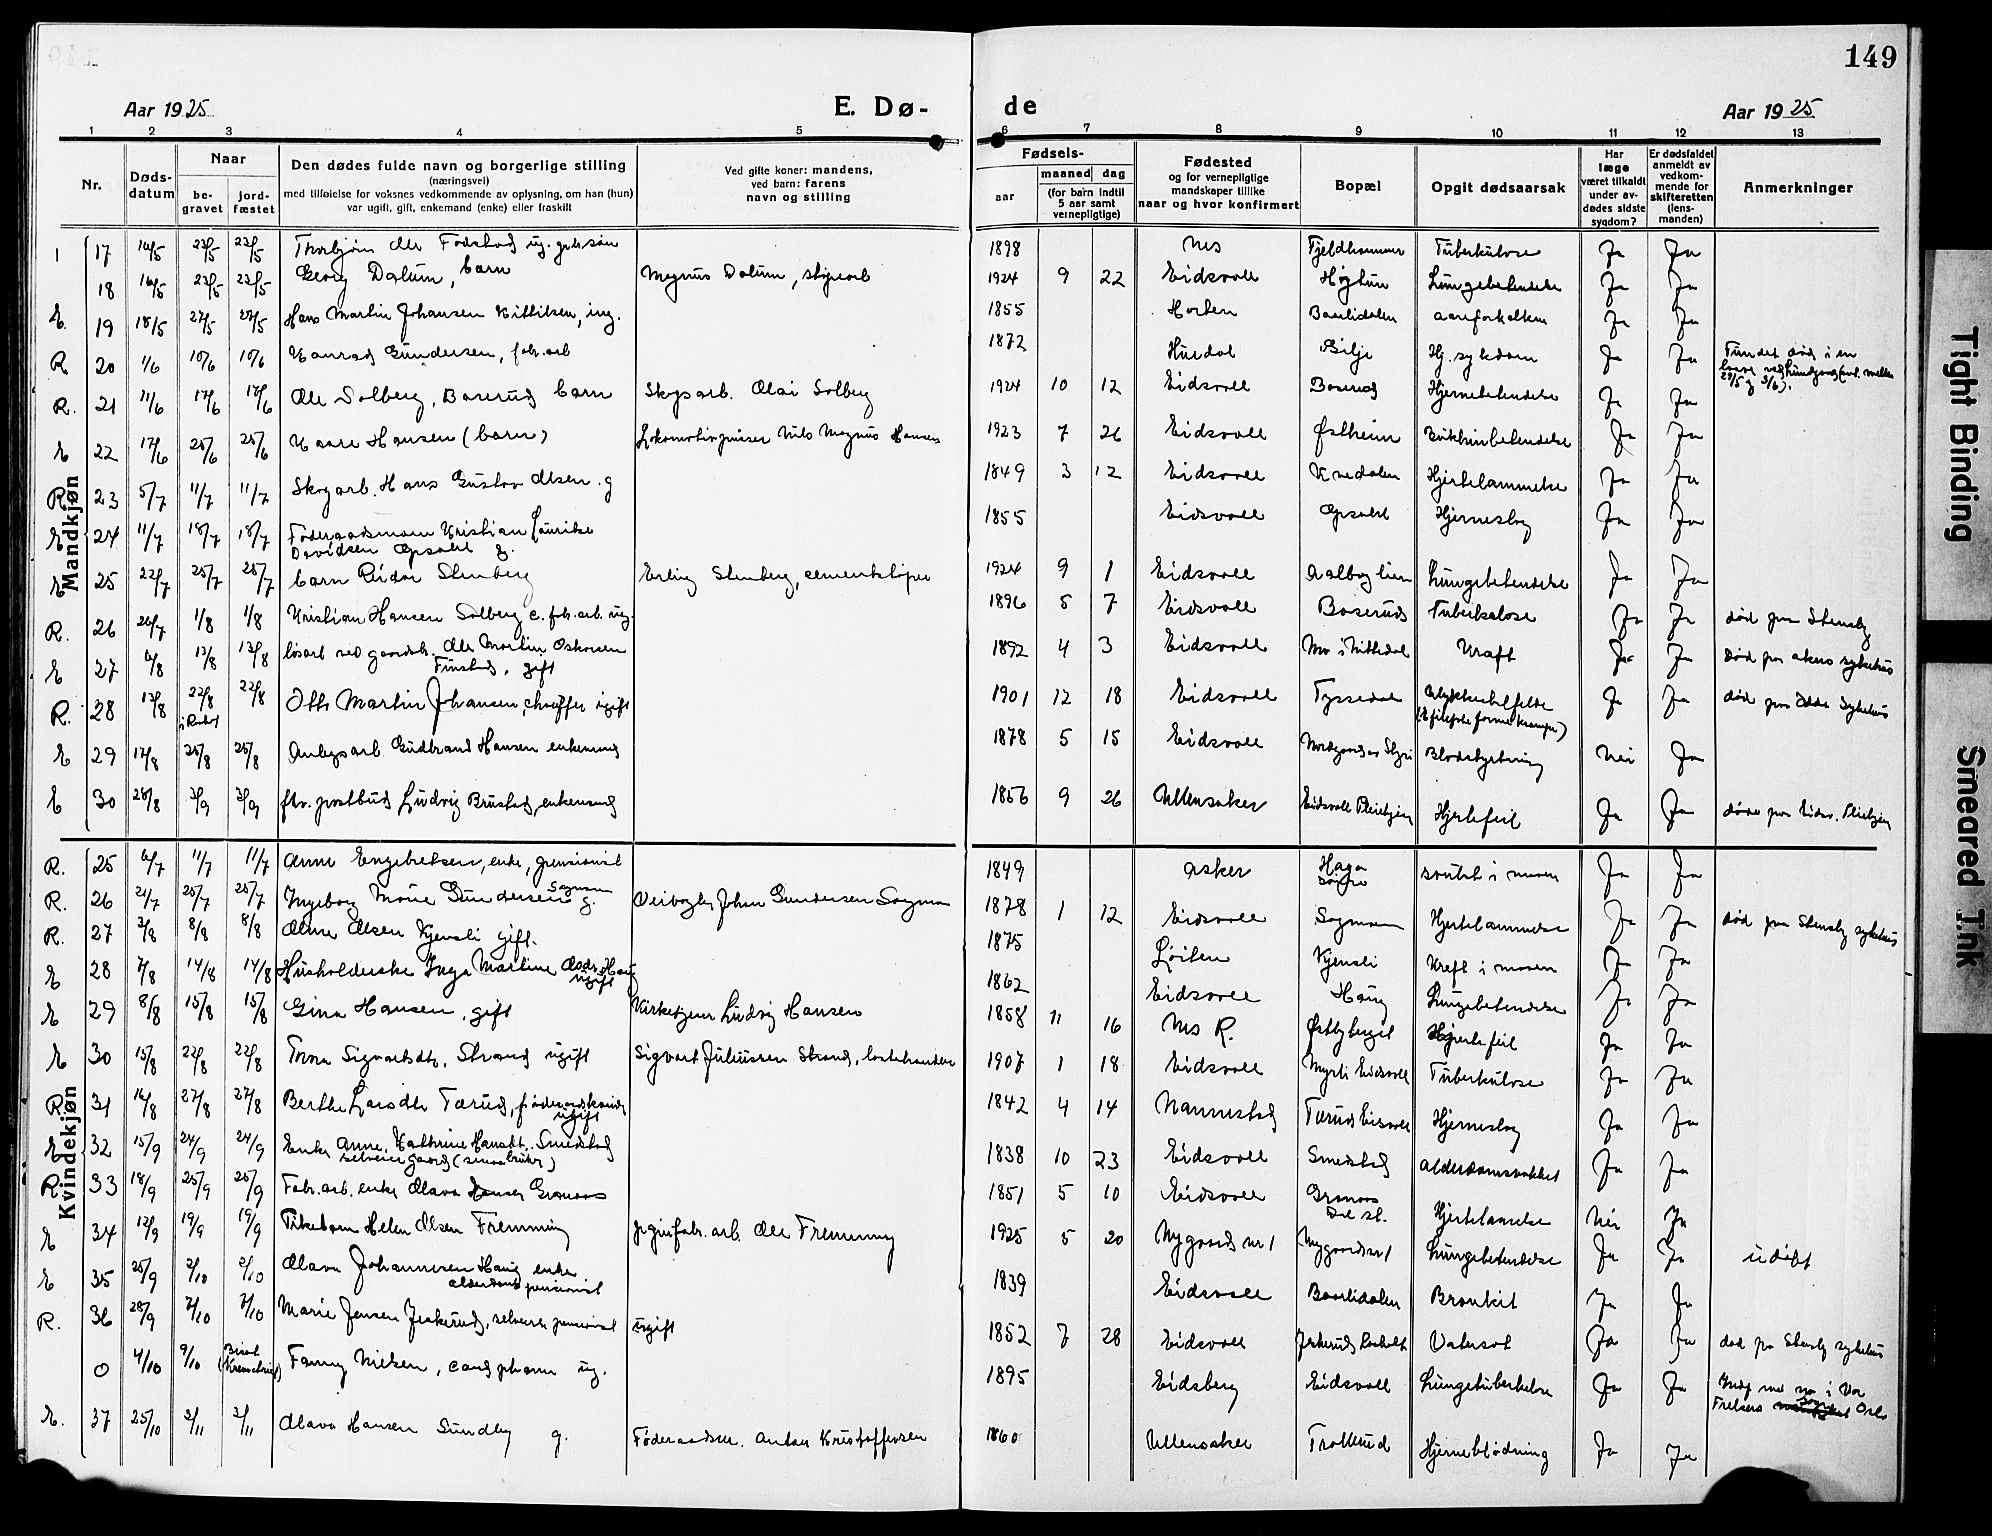 149
Aar 1925
E. Dø-
de
Aar 1925
1 2 3 4 5 6 7 8 9 10 11 12 13
Nr.
Døds-
datum
Naar
be-
gravet
jord-
fæstet
Den dødes fulde navn og borgerlige stilling
(næringsvei)
med tilføielse for voksnes vedkommende av oplysning, om han (hun)
var ugift, gift, enkemand (enke) eller fraskilt
Ved gifte koner: mandens,
ved barn: farens
navn og stilling
Fødsels-
aar
maaned dag
(for barn indtil
5 aar samt
vernepligtige)
Fødested
og for vernepligtige
mandskaper tillike
naar og hvor konfirmert
Bopæl
Opgit dødsaarsak
Har
læge
været tilkaldt
under av-
dødes sidste
sygdom?
Er dødsfaldet
anmeldt av
vedkom-
mende for
skifteretten
(lens-
manden)
Anmerkninger
Mandkjøn
17 16/5 23/5 23/5 Thorbjørn Ole Fodstad ug. 1898 Nes Fjeldhammer Tuberkulose Ja Ja
18 16/5 23/5 23/5 Georg Dalum, barn Magnus Dalum, støpearb 1924 9 22 Eidsvoll Høgtun Lungebetendelse Ja Ja
E. 19 18/5 27/5 27/5 Hans Martin Johansen Kittilsen, ug. 1855 Horten Baarlidalen Aareforkalkn Ja Ja
R 20 1/6 10/6 10/6 Konrad Gundersen, fabr.arb 1872 Hurdal Gilje Hj. sykdom Ja Ja Fundet død i en
29/5 g 3/6).
R. 21 11/6 17/6 17/6 Ole Solberg, Baserud barn Skogsarb. Olai Solberg 1924 10 12 Eidsvoll Baserud Hjernebetendelse Ja Ja
E 22 17/6 25/6 25/6 Kaare Hansen (barn) Lokomotivpusser Nils Magnus Hansen 1923 7 26 Eidsvoll Østheim Bukhinbetendelse Ja Ja
R 23 5/7 11/7 11/7 Skogarb. Hans Gustav Olsen g 1849 3 12 Eidsvoll Knedalen Hjertelammelse Ja Ja
E 24 11/7 18/7 18/7 Føderaadsmann Kristian Laurits
Davidsen Opsahl g. 1855 Eidsvoll Opsahl Hjerneslag Ja Ja
E 25 22/7 25/7 25/7 barn Reidar Stenberg Erling Stenberg, cementstøper 1924 9 1 Eidsvoll Aalborglien Lungebetendelse Ja Ja
R. 26 26/7 1/8 1/8 Kristian Hansen Solberg e. fabr.arb. ug. 1896 5 7 Eidsvoll Baserud Tuberkulose Ja Ja død paa Stensby
E 27 6/8 13/8 13/8 løsarb ved gaardsb. Ole Martin Oskarsen
Finstad, gift 1892 4 3 Eidsvoll Mo i Nittedal Kræft Ja Ja Død paa Akers sykehus
R. 28 13/8 22/8 22/8 Otto Martin Johansen, chauffer ugift 1901 12 18 Eidsvoll Tyssedal Ulykkestilfelde Ja Ja død paa Odde Sykehus
E 29 17/8 25/8 25/8 Anlegsarb. Gudbrand Hansen enkemand 1878 5 15 Eidsvoll Nordgaarden Styri Blodstyrtning Nei Ja
E 30 28/8 3/9 3/9 fhv. postbud Ludvig Brustad, enkemand 1856 9 26 Ullensaker Eidsvoll Pleiehjem Hjertefeil Ja Ja døde paa Eidsv. Pleiehjem
Kvindekjøn
R. 25 6/7 11/7 11/7 Anne Engebretsen, enke, pensionist 1849 Asker Haga
søndre svulst i maven Ja Ja
R. 26 21/7 25/7 25/7 Ingeborg Marie Gundersen Sagmoen g. Veivogter Johan Gundersen Sagmoen 1878 1 12 Eidsvoll Sagmoen Hjertelammelse Ja Ja død paa Stensby sykehus
R. 27 3/8 8/8 8/8 Oline Olsen Kjensli gift. 1875 Løiten Kjensli Kreft i maven Ja Ja
E 28 7/8 14/8 14/8 Husholderske Inga Martine Olsdr. Haug
ugift 1862 Eidsvoll Haug Lungebetendelse Ja Ja
E 29 8/8 15/8 15/8 Gina Hansen, gift Kirketjener Ludvig Hansen 1858 11 16 Nes R. Østbyberget Hjertefeil Ja Ja
E 30 15/8 22/8 22/8 Anna Sigvartsdtr. Strand ugift Sigvart Juliussen Strand, lastehandler 1907 1 18 Eidsvoll Myrli Eidsvoll Tuberkulose Ja Ja
R 31 16/8 27/8 27/8 Berthe Larsdtr Tærud, føderaadskvinde
ugift 1842 4 14 Nannestad Tærud Eidsvoll Hjerneslag Ja Ja
E 32 15/9 24/9 24/9 Enke Anne Kathrine Hansdt. Smedstad
selveier gaard (smaabruker) 1838 10 23 Eidsvoll Smedstad Alderdomssvakhet Ja Ja
R 33 18/9 25/9 25/9 Fabr.arb. enke Olava Hansen Grønaas 1851 5 10 Eidsvoll Grønaas
Dal st. Hjertelamelse Nei Ja
E 34 12/9 19/9 19/9 Pikebarn Helen Olsen Fremming fabr.arb. Ole Fremming 1925 5 20 Nygaard nr 1 Nygaard nr 1 Lungebetendelse Ja Ja udøpt
E 35 25/9 2/10 2/10 Olava Johannesen Haug enke
alderdoms pensionist 1839 Eidsvoll Baarlidalen Bronkit Ja Ja
R. 36 28/9 7/10 7/10 Marie Jensen Jeskerud, selveiersk pensionist ugift 1852 7 28 Eidsvoll Jeskerud Raaholt Vatersot Ja Ja død paa Stensby sykehus
0 4/10 9/10 Bisat
(Krematoriet) Fanny Nielsen, cand pharm ug. 1895 Eidsberg Eidsvoll Lungetuberkulose Ja Ja
Frelsers Oslo
E. 37 25/10 3/11 3/11 Olava Hansen Sundby g. Føderaadsm. Anton Kristoffersen 1860 Ullensaker Trollerud Hjerneblødning Ja Ja
Tight Binding
Smeared Ink